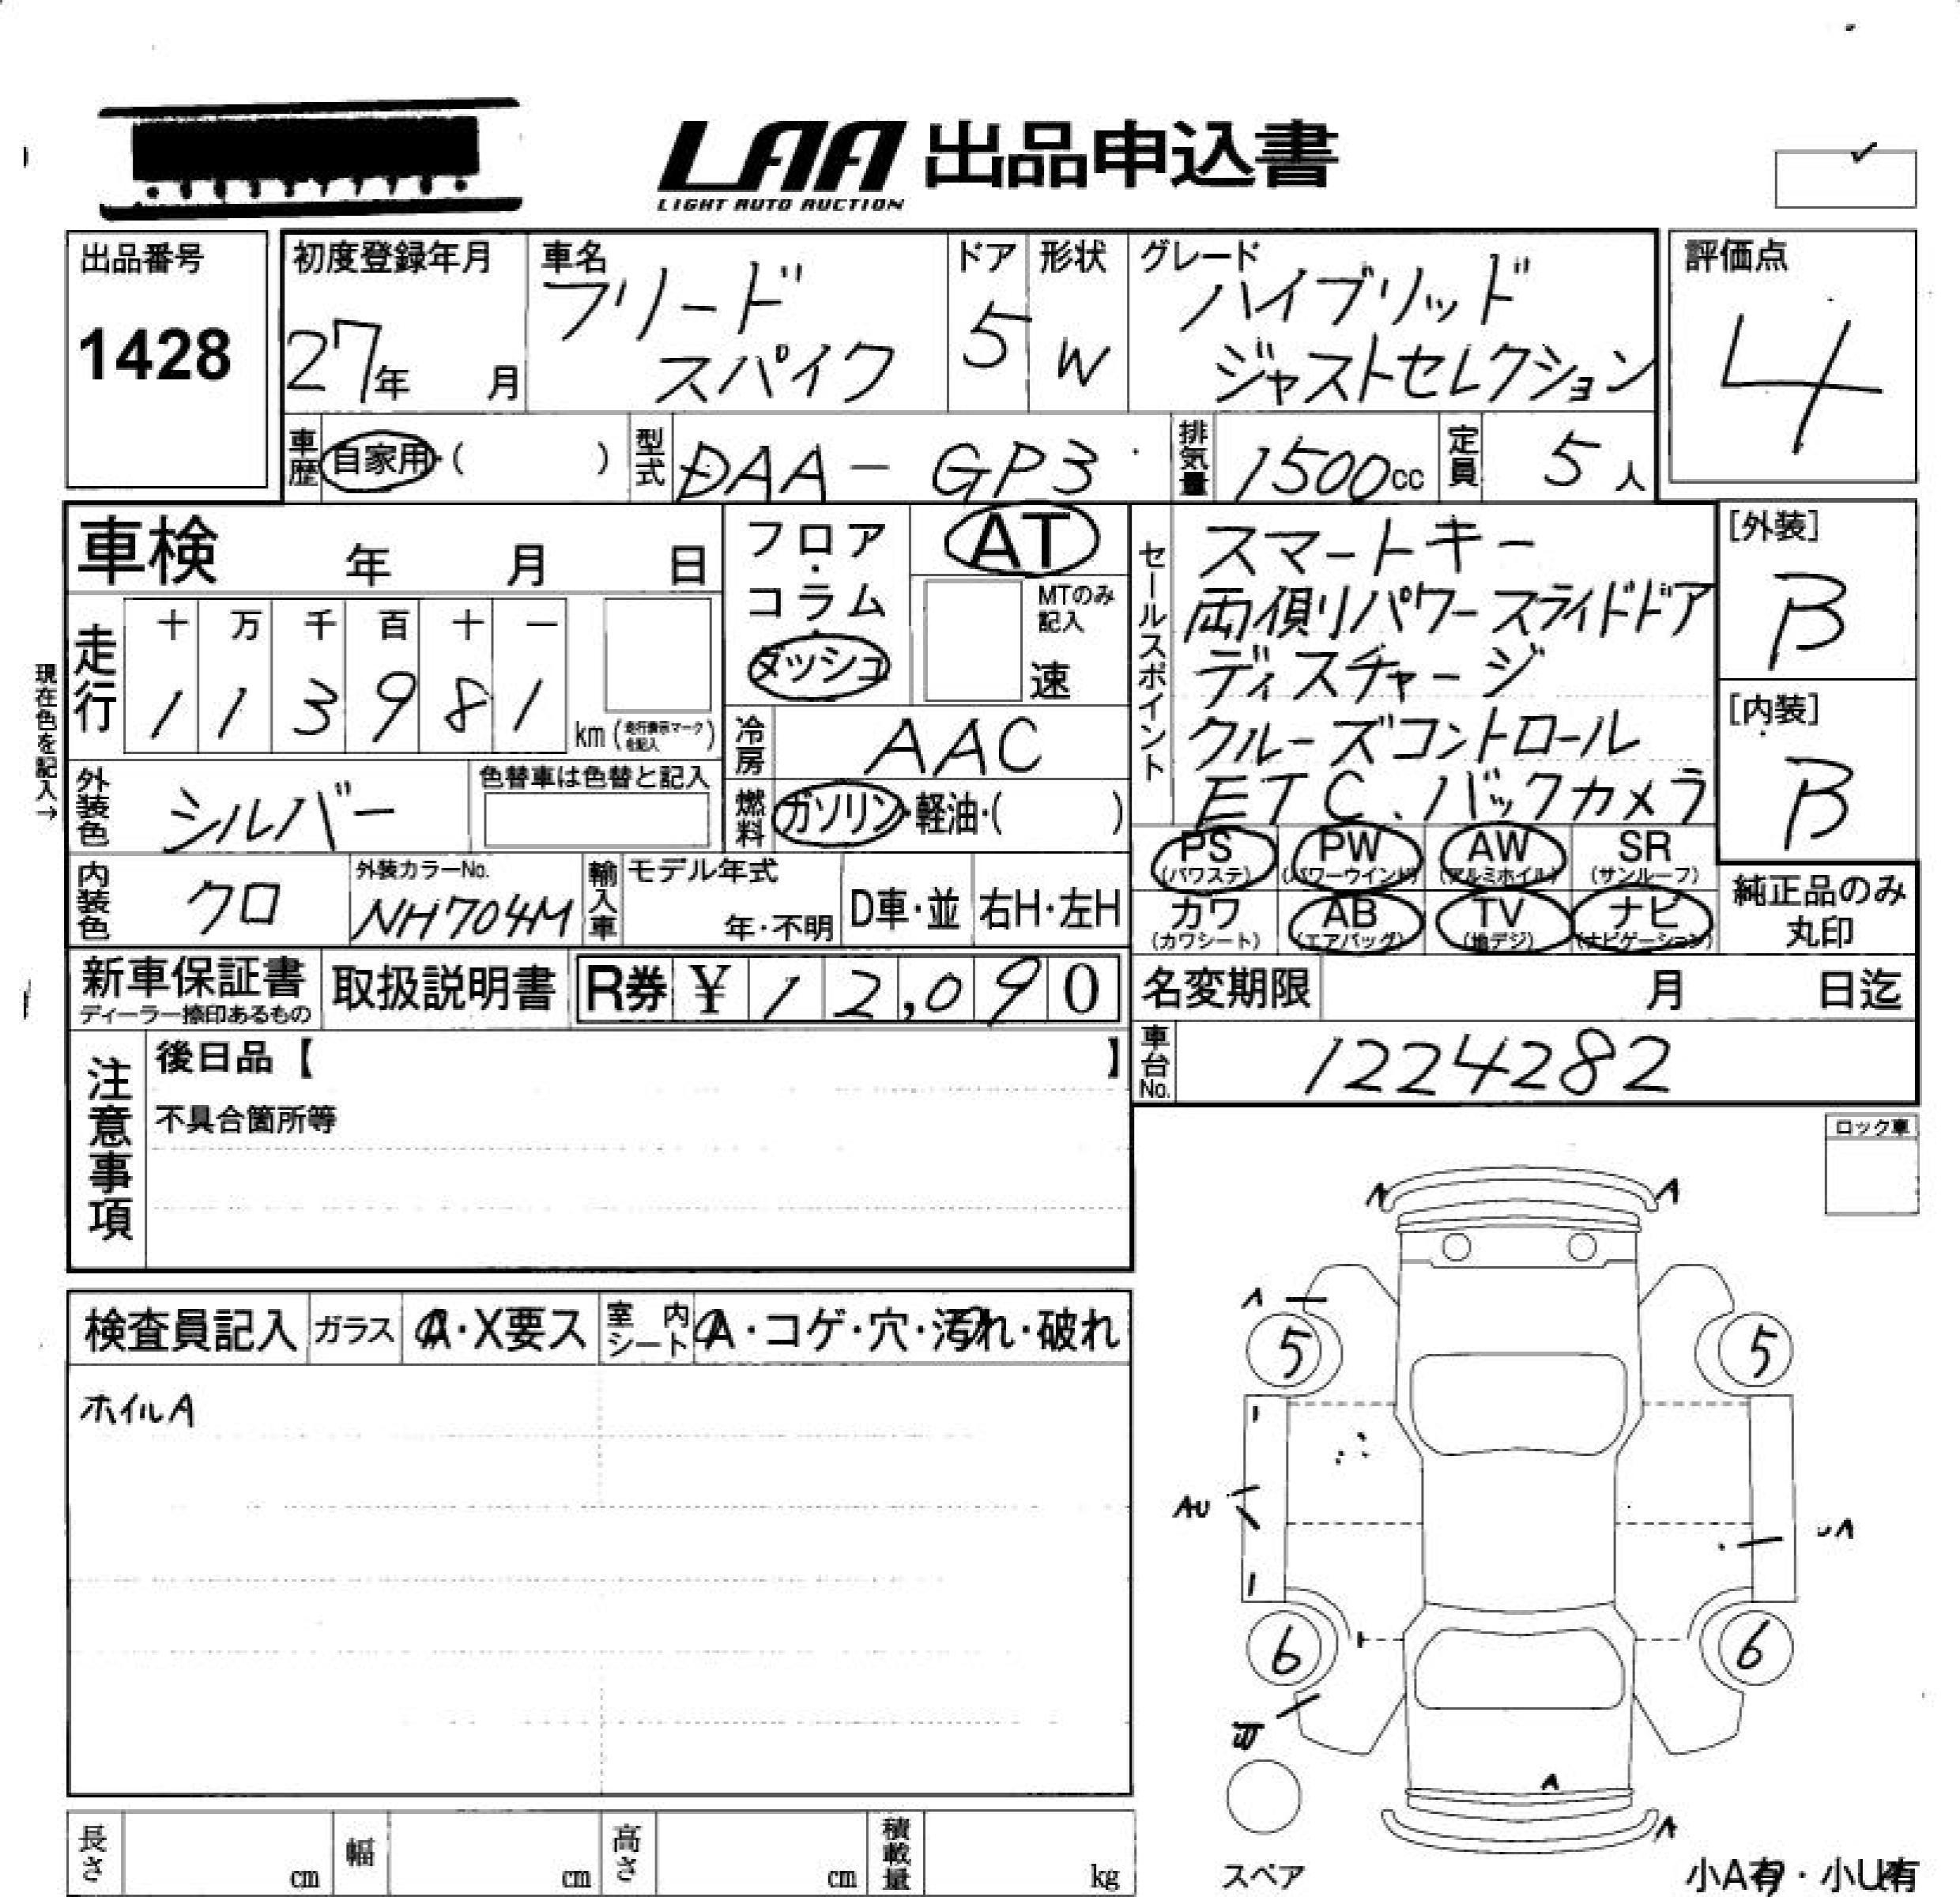 LAA 出品申込書
LIGHT AUTO AUCTION
出品番号
1428
初度登録年月
27年 月
車名
フリード
スパイク
ドア
5
形状
W
グレード
ハイブリッド
ジャストセレクション
評価点
4
車歴 自家用・( )
型式 DAA-GP3
排気量 1500cc
定員 5人
車検 年 月 日
フロア・コラム・ダッシュ
AT
MTのみ記入
速
セールスポイント
スマートキー
両側パワースライドドア
ディスチャージ
クルーズコントロール
ETC、バックカメラ
[外装]
B
[内装]
B
現在色を記入→
走行
十 万 千 百 十 一
1 1 3 9 8 1 km (走行表示マークを記入)
冷房 AAC
燃料 ガソリン・軽油・( )
外装色 シルバー
色替車は色替と記入
PS (パワステ)
PW (パワーウインド)
AW (アルミホイル)
SR (サンルーフ)
カワ (カワシート)
AB (エアバッグ)
TV (地デジ)
ナビ (ナビゲーション)
純正品のみ
丸印
内装色 クロ
外装カラーNo.
NH704M
輸入車
モデル年式
年・不明
D車・並
右H・左H
新車保証書
ディーラー捺印あるもの
取扱説明書
R券 ¥ 12,090
名変期限 月 日迄
車台No. 1224282
注意事項
後日品【 】
不具合箇所等
ロック車
検査員記入
ガラス A・X要ス
室内シート A・コゲ・穴・汚れ・破れ
ホイルA
A
A
A
5
5
AU
UA
6
6
A
A
スペア
小A有・小U有
長さ cm
幅 cm
高さ cm
積載量 kg